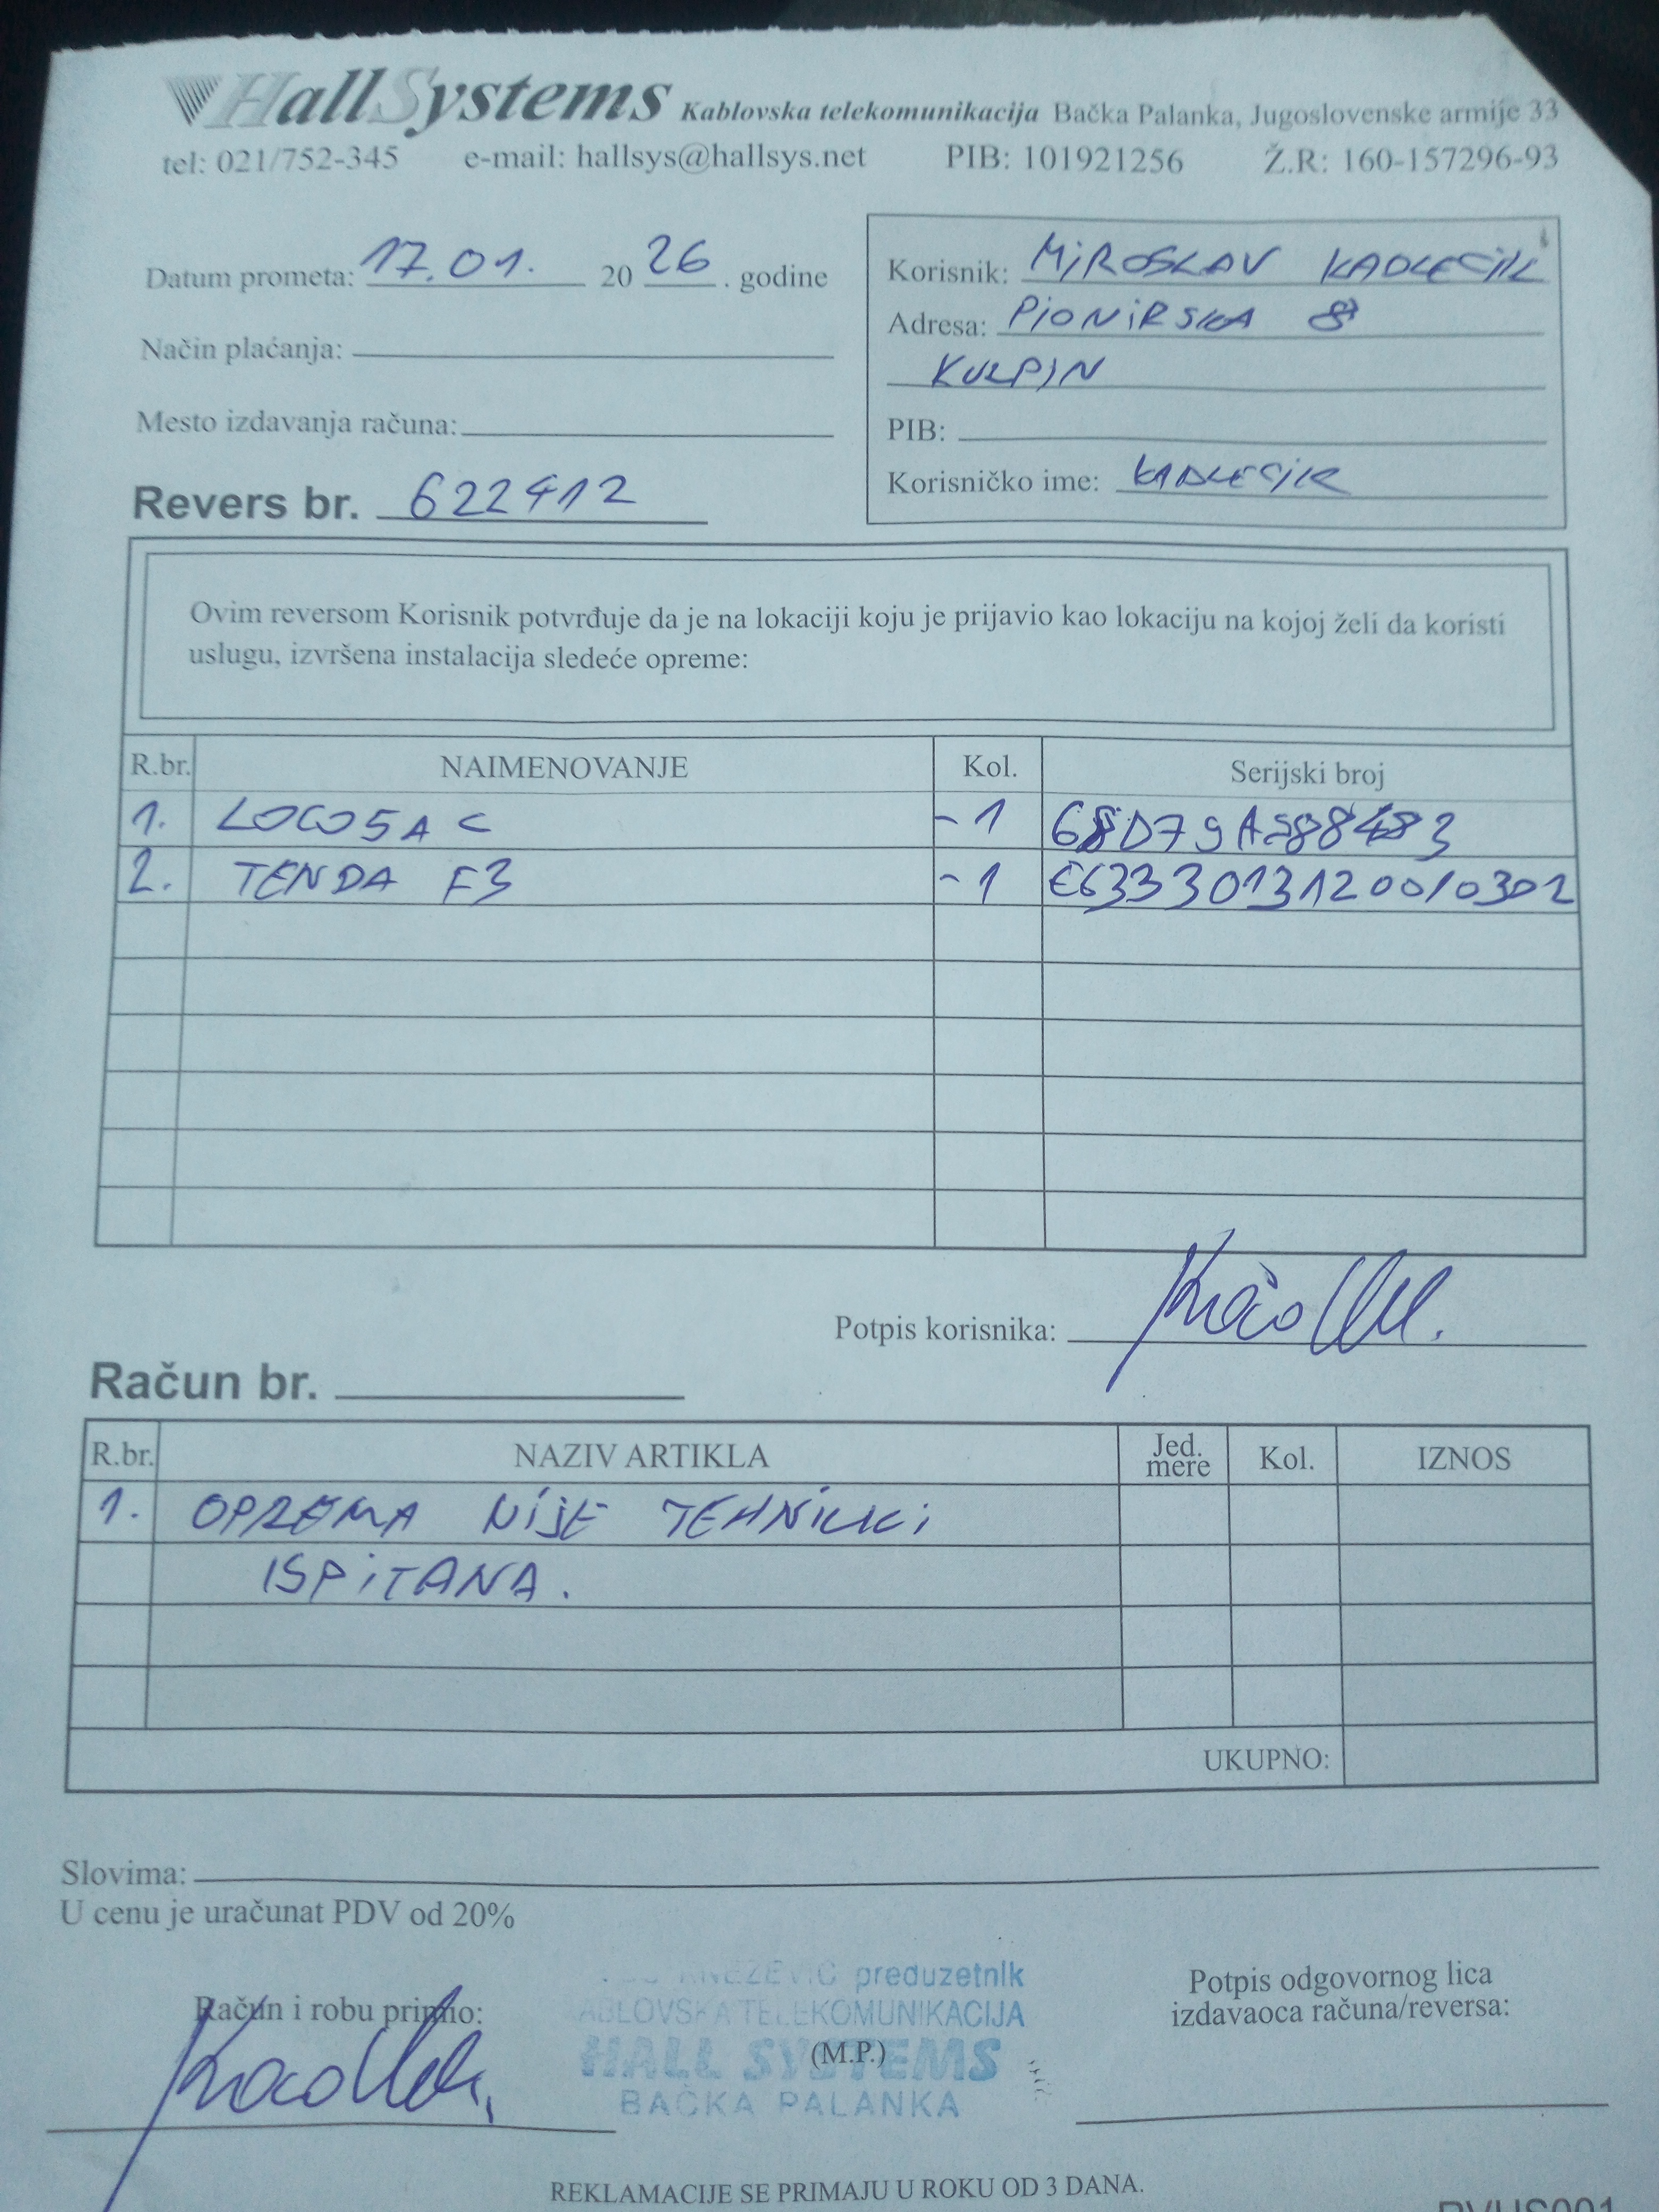 HallSystems Kablovska telekomunikacija Bačka Palanka, Jugoslovenske armije 33
tel: 021/752-345 e-mail: hallsys@hallsys.net PIB: 101921256 Ž.R: 160-157296-93
Datum prometa: 17.01. 2026. godine
Način plaćanja:
Mesto izdavanja računa:
Revers br. 622412
Korisnik: MiROSLAV KADLECIK
Adresa: PIONiRSKA 8
KULPIN
PIB:
Korisničko ime: KADLECIK
Ovim reversom Korisnik potvrđuje da je na lokaciji koju je prijavio kao lokaciju na kojoj želi da koristi
uslugu, izvršena instalacija sledeće opreme:
R.br. NAIMENOVANJE Kol. Serijski broj
1. LOCO5AC -1
2. TENDA F3 -1 E6333013120010302
Potpis korisnika:
Račun br.
R.br. NAZIV ARTIKLA Jed. mere Kol. IZNOS
1. OPREMA NIJE TEHNIČKI
ISPITANA.
UKUPNO:
Slovima:
U cenu je uračunat PDV od 20%
Račun i robu primio:
KNEZEVIC preduzetnik
ABLOVSKA TELEKOMUNIKACIJA
HALL SYSTEMS
(M.P.)
BAČKA PALANKA
Potpis odgovornog lica
izdavaoca računa/reversa:
REKLAMACIJE SE PRIMAJU U ROKU OD 3 DANA.